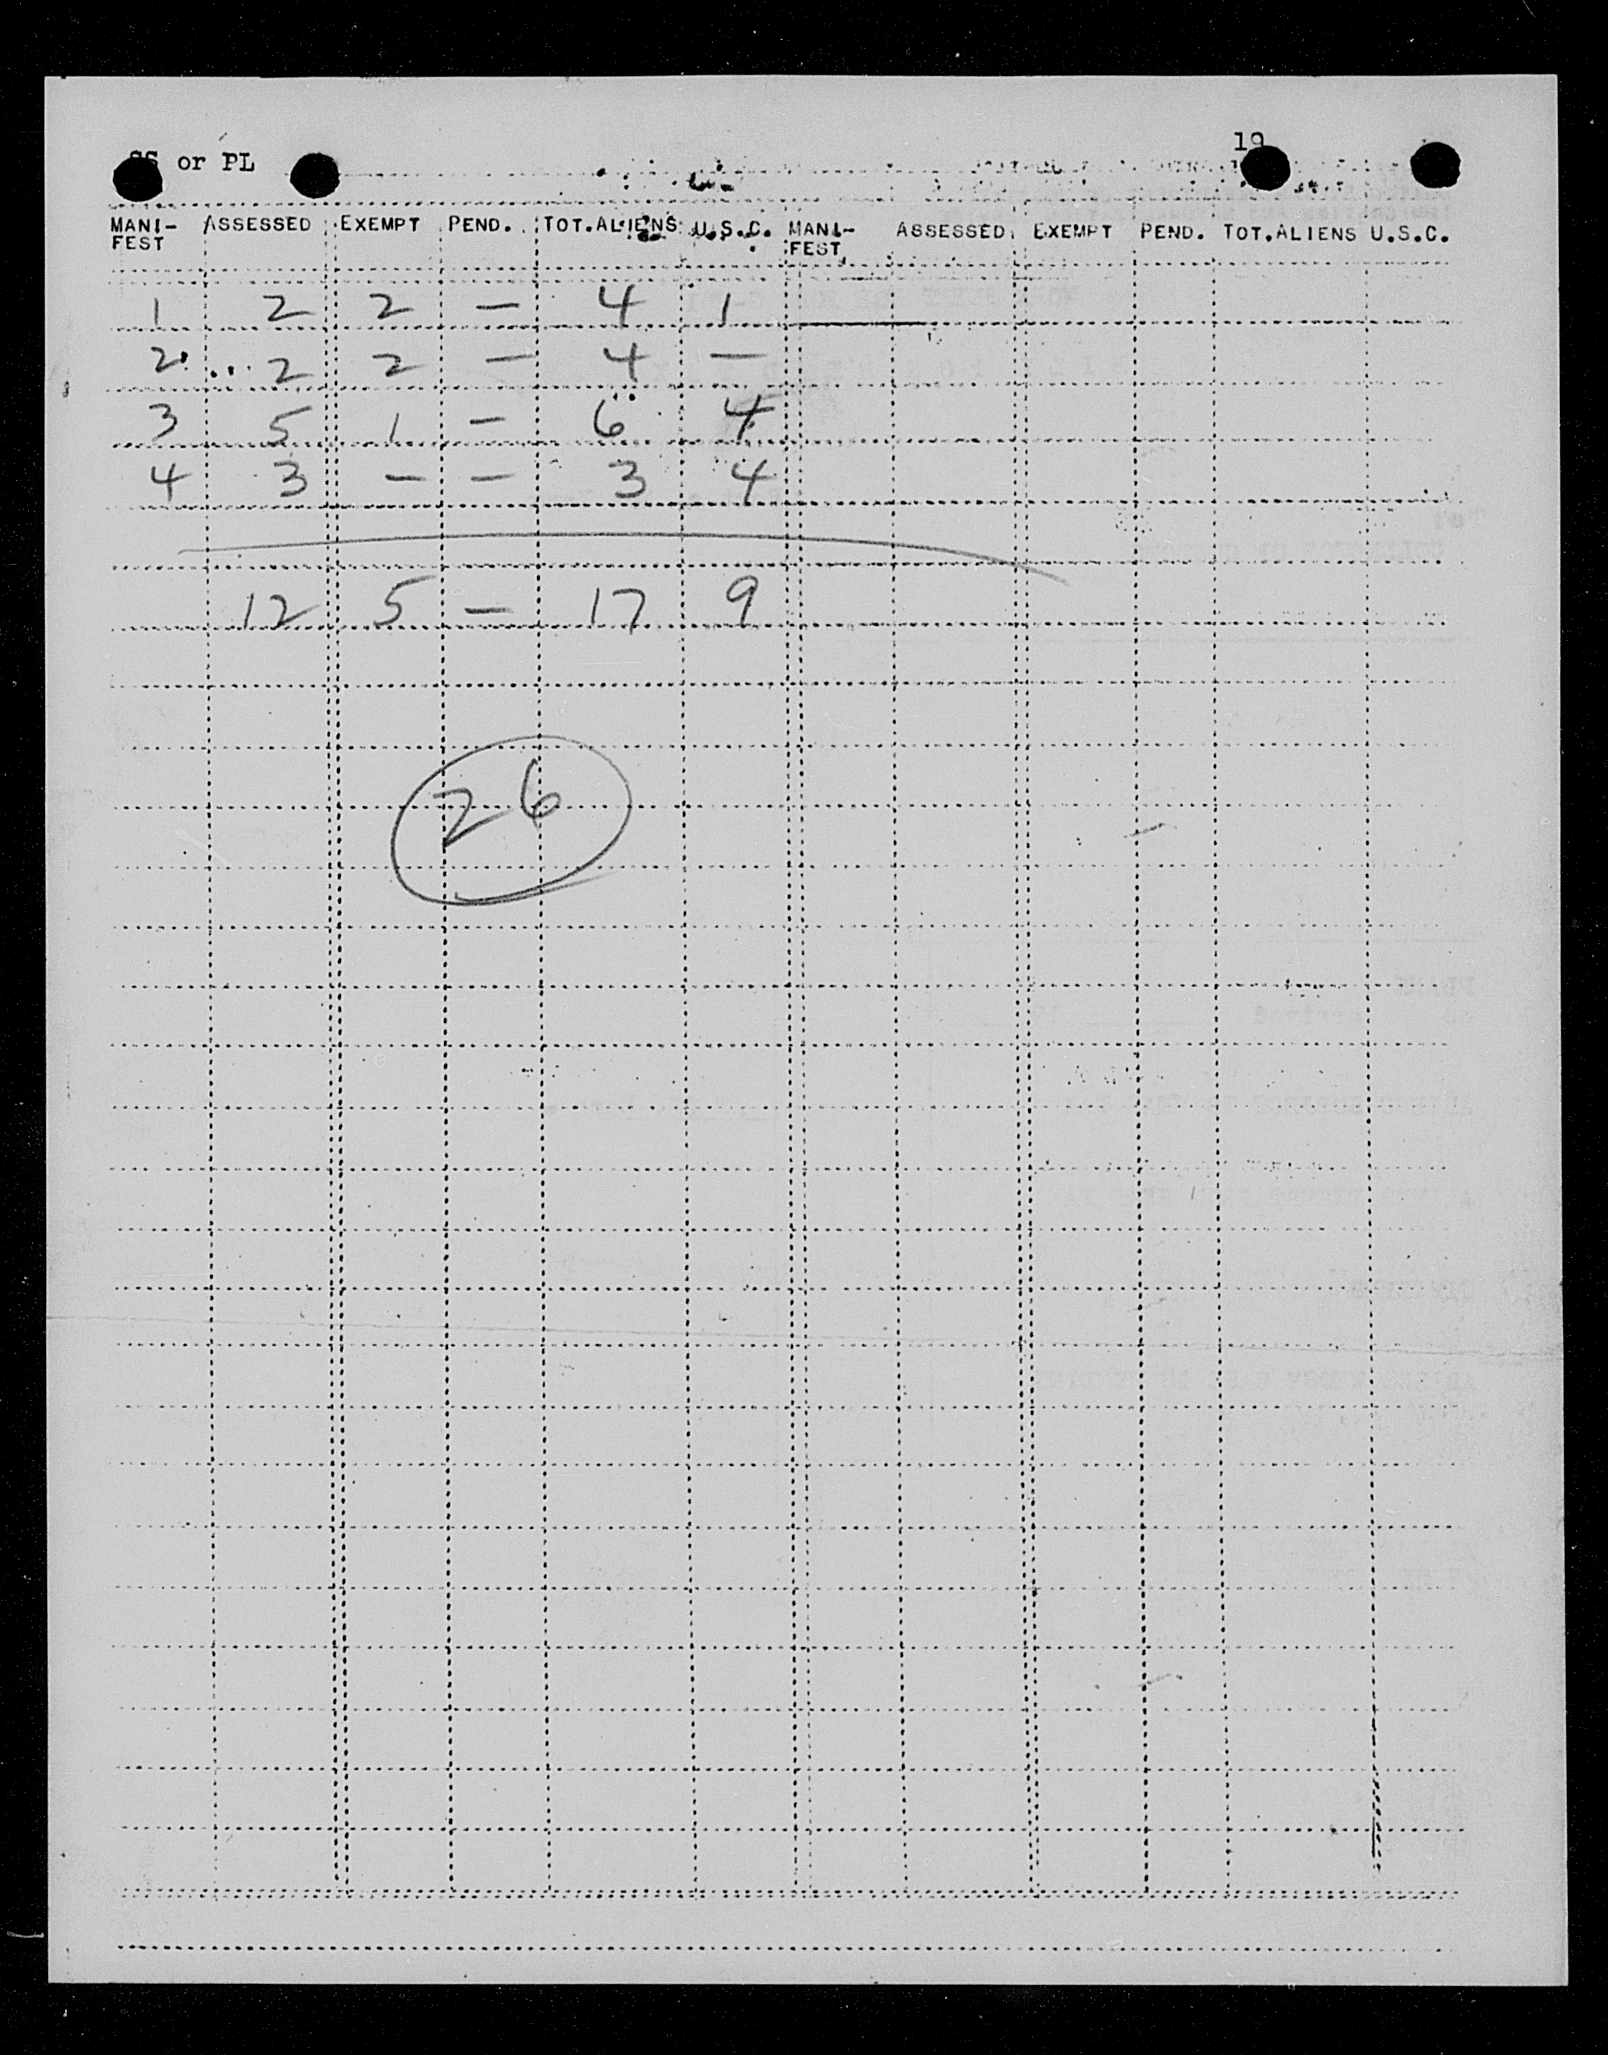 SS or PL 19
MANI- ASSESSED EXEMPT PEND. TOT.ALIENS U.S.C. MANI- ASSESSED EXEMPT PEND. TOT.ALIENS U.S.C.
FEST FEST
1 2 2 — 4 1
2 2 2 — 4 —
3 5 1 — 6 4
4 3 — — 3 4
12 5 — 17 9
26